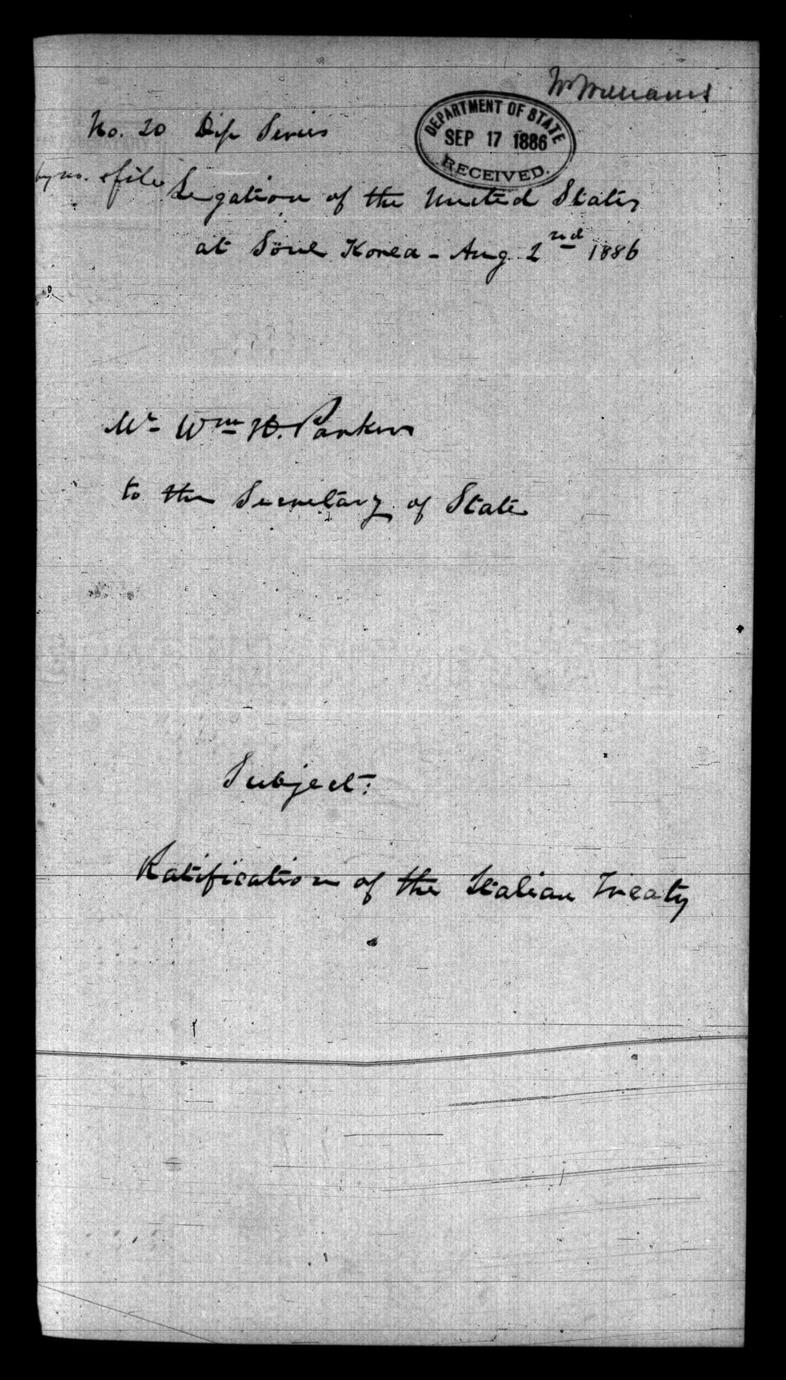 Mr Williams
DEPARTMENT OF STATE
SEP 17 1886
RECEIVED.
No. 20 Dip Series
& file
Legation of the United States
at Söul Korea - Aug 2nd 1886
Mr Wm H. Parker
to the Secretary of State
Subject:
Ratification of the Italian Treaty